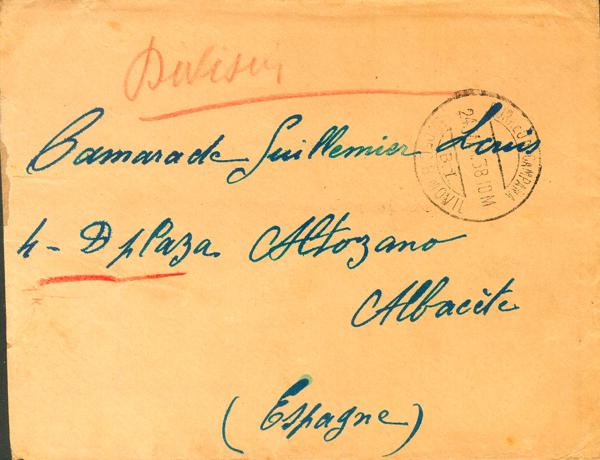 Division
Camarade Guillemier Louis
4 - D plaza Altozano
Albacète
(Espagne)
CORREO DE CAMPAÑA